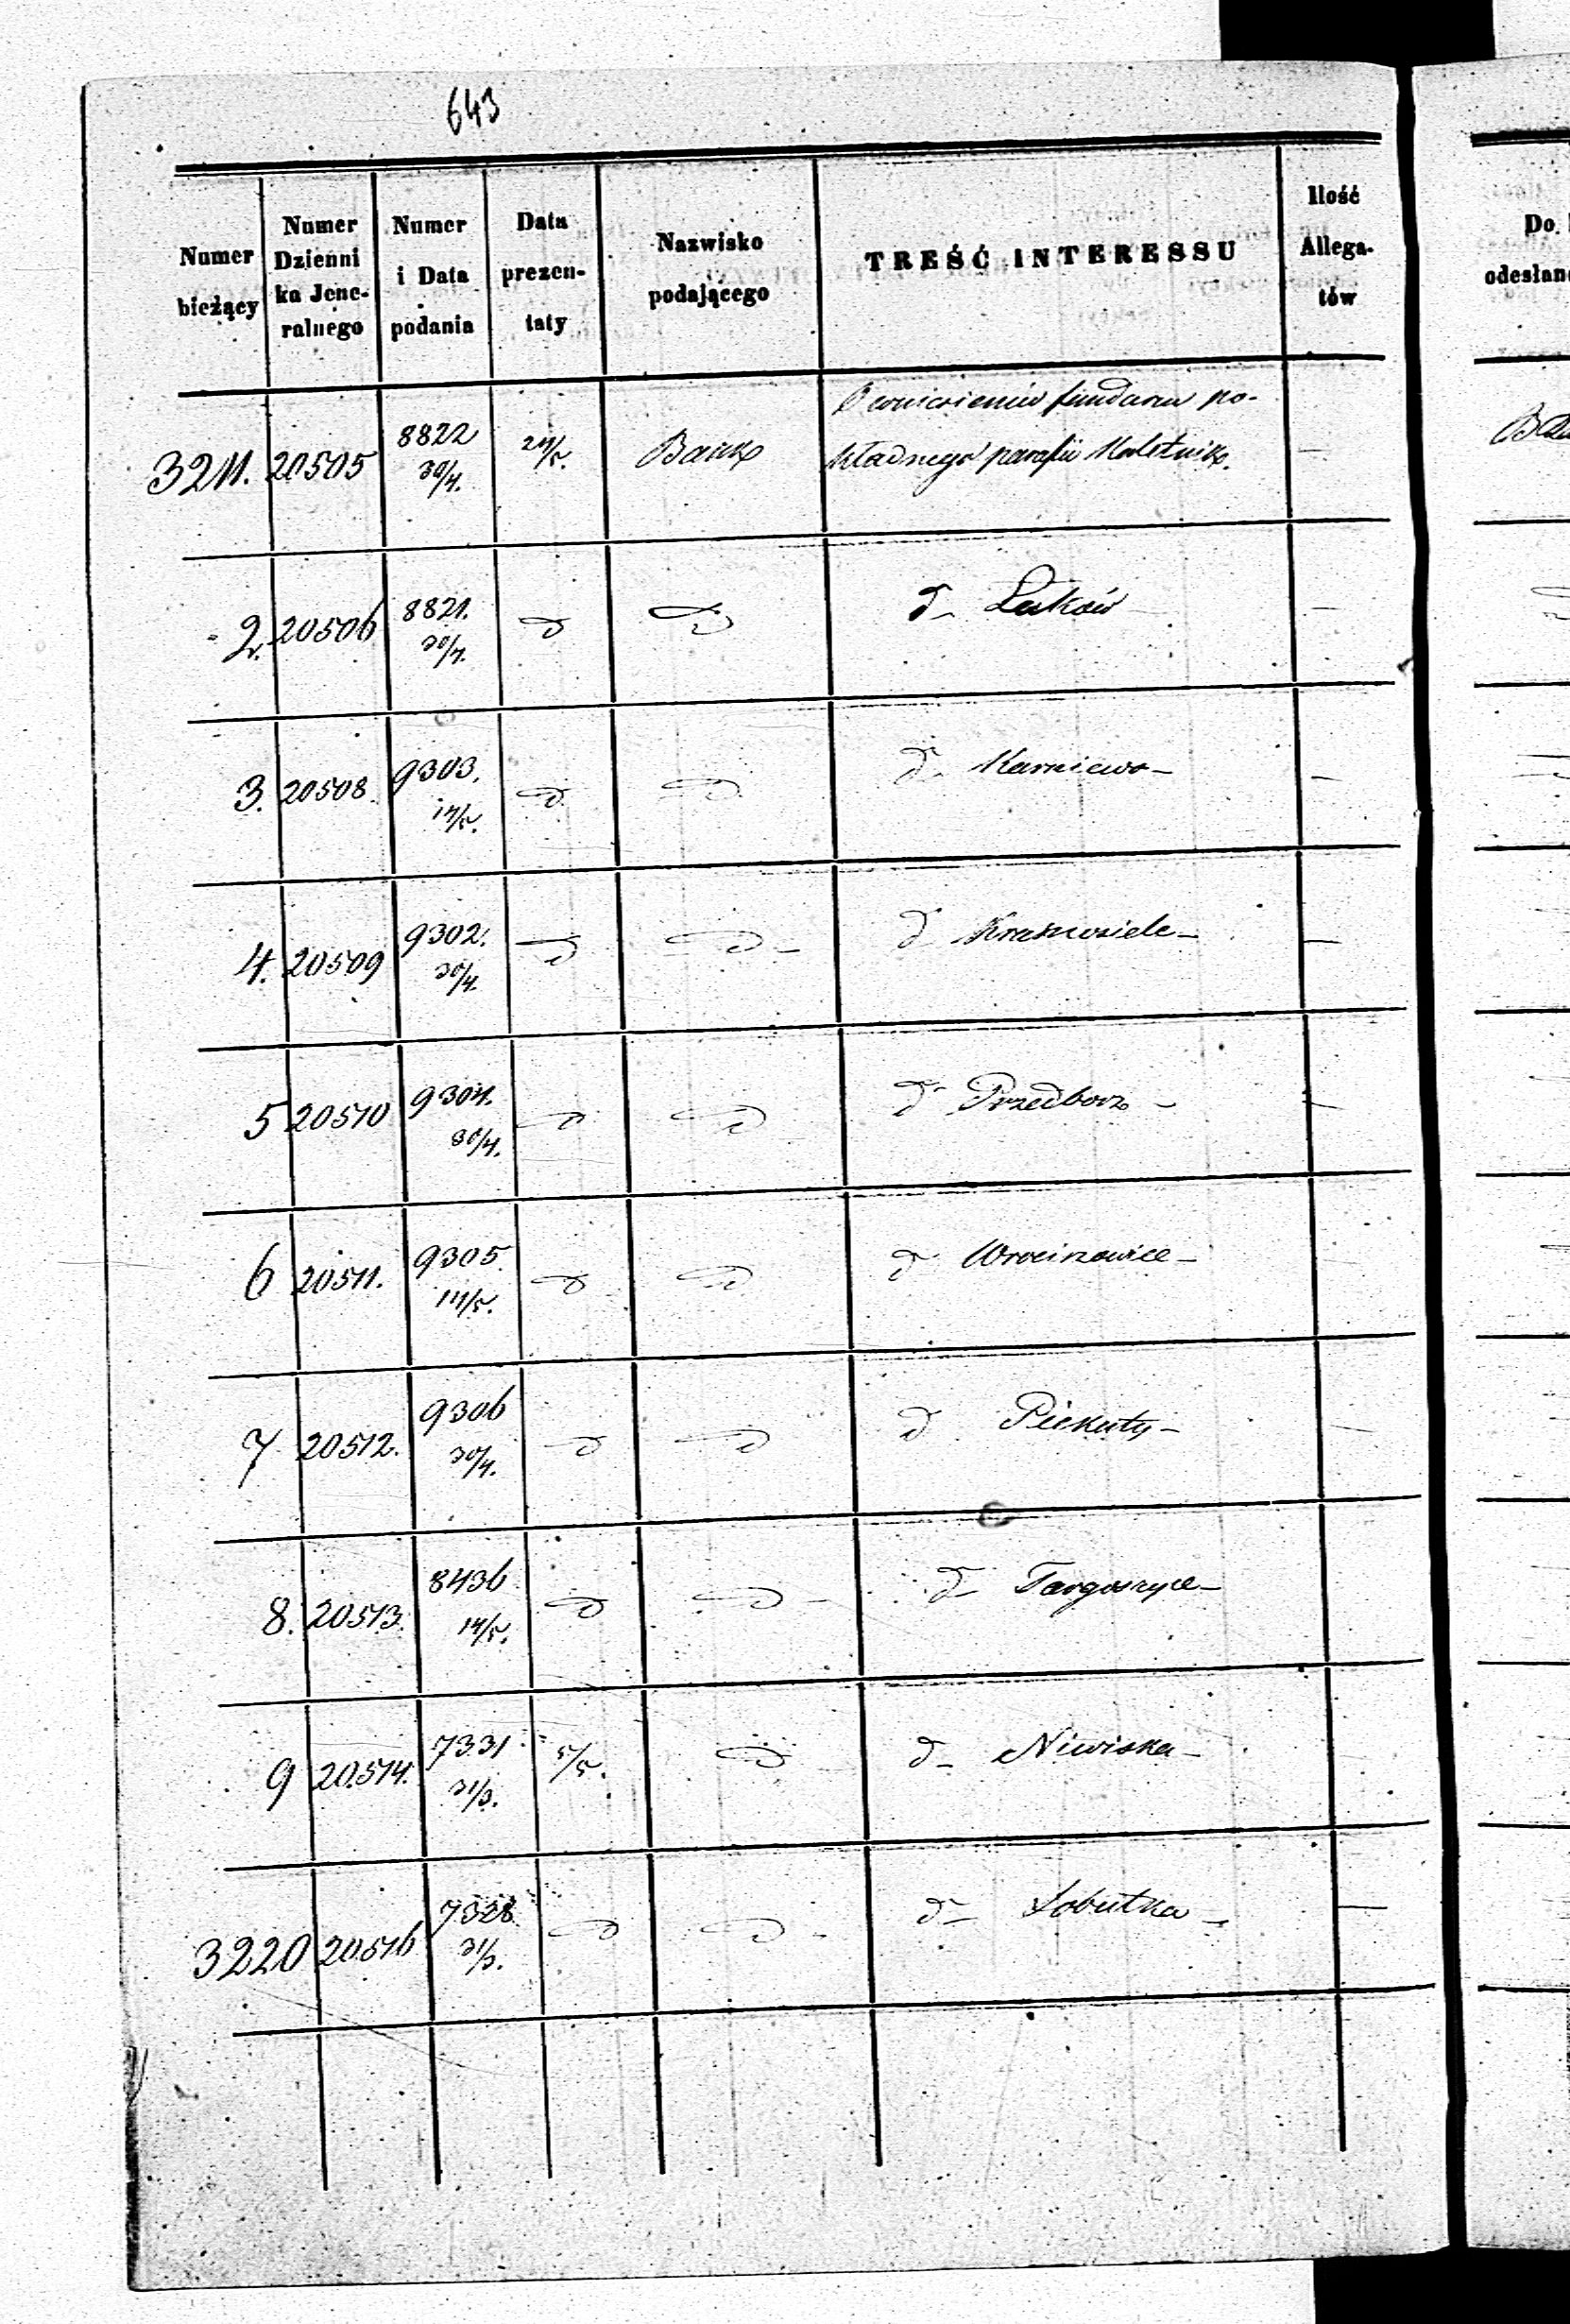 643
Numer bieżący | Numer Dzienni ka Jene- ralnego | Numer i Data podania | Data prezen- taty | Nazwisko podającego | TREŚĆ INTERESSU | Ilość Allega- tów | Do odesłan
3211. | 20505 | 8822 30/4. | 24/5. | Bank | O wniesieniu fundanu po-
kładnego parafii Kaletnik. | —
2. | 20506 | 8821. 30/4. | d | d | d- Łuków | —
3. | 20508. | 9303. 14/5. | d | d | d- Karniewo- | —
4. | 20509 | 9302. 30/4. | d | d - | d- Krasnosiele- | —
5 | 20510 | 9304. 30/4. | d | d | d- Przedborz - | —
6 | 20511. | 9305 14/5. | d | d | d- Wrocinowice-
7 | 20512. | 9306 30/4. | d | d | d Piekuty- | —
8. | 20513. | 8436 14/5. | d | d - | d- Targoszyce-
9 | 20514. | 7331 31/3. | 5/5. | d | d- Niwiska-
3220 | 20516 | 7328. 31/3. | d | d - | d- Łobutka - | —